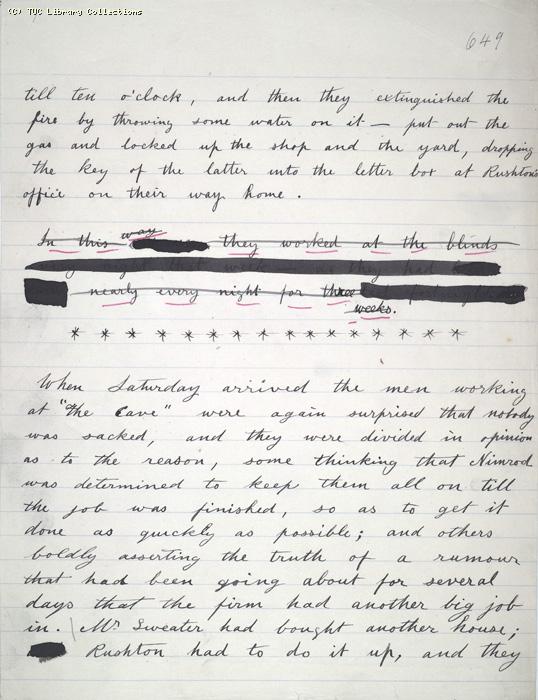 (C) TUC Library Collections
649
till ten o'clock, and then they extinguished the
fire by throwing some water on it — put out the
gas and locked up the shop and the yard, dropping
the key of the latter into the letter box at Rushton's
office on their way home.
way
In this they worked at the blinds
they had
nearly every night for three
weeks.
* * * * * * * * * * * * * * *
When Saturday arrived the men working
at "The Cave" were again surprised that nobody
was sacked, and they were divided in opinion
as to the reason, some thinking that Nimrod
was determined to keep them all on till
the job was finished, so as to get it
done as quickly as possible; and others
boldly asserting the truth of a rumour
that had been going about for several
days that the firm had another big job
in. / Mr Sweater had bought another house;
Rushton had to do it up, and they